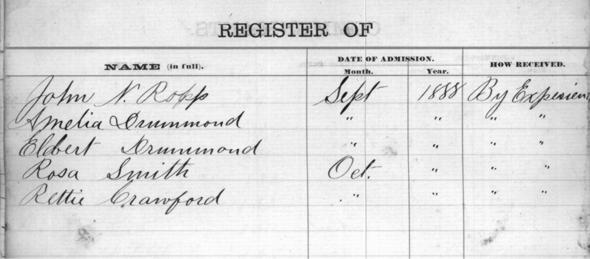 REGISTER OF
NAME (in full). DATE OF ADMISSION. HOW RECEIVED.
Month. Year.
John N. Ropp Sept 1888 By Experien
Amelia Drummond " " " "
Elbert Drummond " " " "
Rosa Smith Oct. " " "
Rettie Crawford " " " "